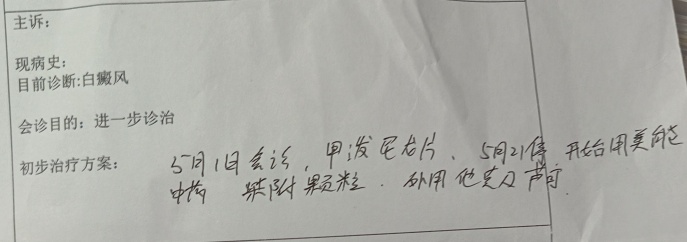 主诉:
现病史:
目前诊断:白癜风
会诊目的: 进一步诊治
初步治疗方案: 5月1日会诊, 甲泼尼龙片、5月21停 开始用美能
中药 颗粒. 外用他克 芦可